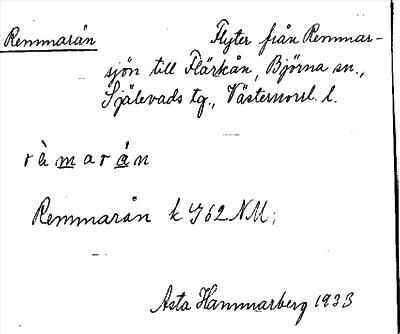 Remmarån Flyter från Remmar-
sjön till Flärkån, Björna sn.,
Själevads tg., Västernorrl. l.
rèmarán
Remmarån k J62 NM;
Asta Hammarberg 1933